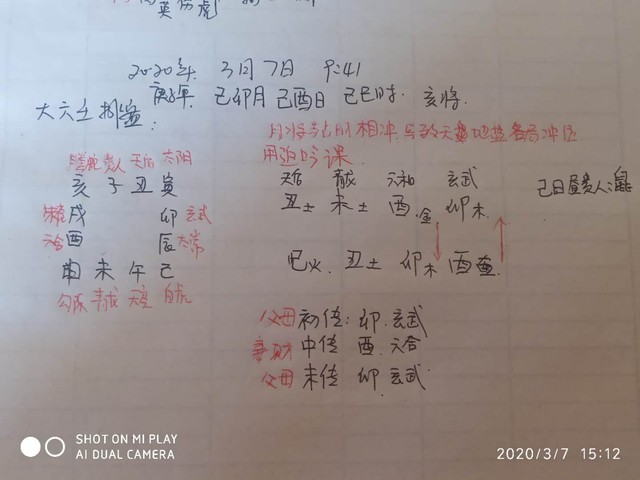 英伤虎
2020年 3月7日 9:41
庚子年 己卯月 己酉日 己巳时 亥将
大六壬排盘:
月将与占时相冲 导致天盘地盘各居冲位
用返吟课
螣蛇 贵人 天后 太阴
亥 子 丑 寅
朱雀 戌 卯 玄武
六合 酉 辰 太常
申 未 午 巳
勾陈 青龙 天空 白虎
天后 青龙 六合 玄武
丑土 未土 酉金 卯木
己日昼贵人:鼠
巳火 丑土 卯木 酉金
父母 初传:卯 玄武
妻财 中传 酉 六合
父母 末传 卯 玄武
SHOT ON MI PLAY
AI DUAL CAMERA
2020/3/7 15:12